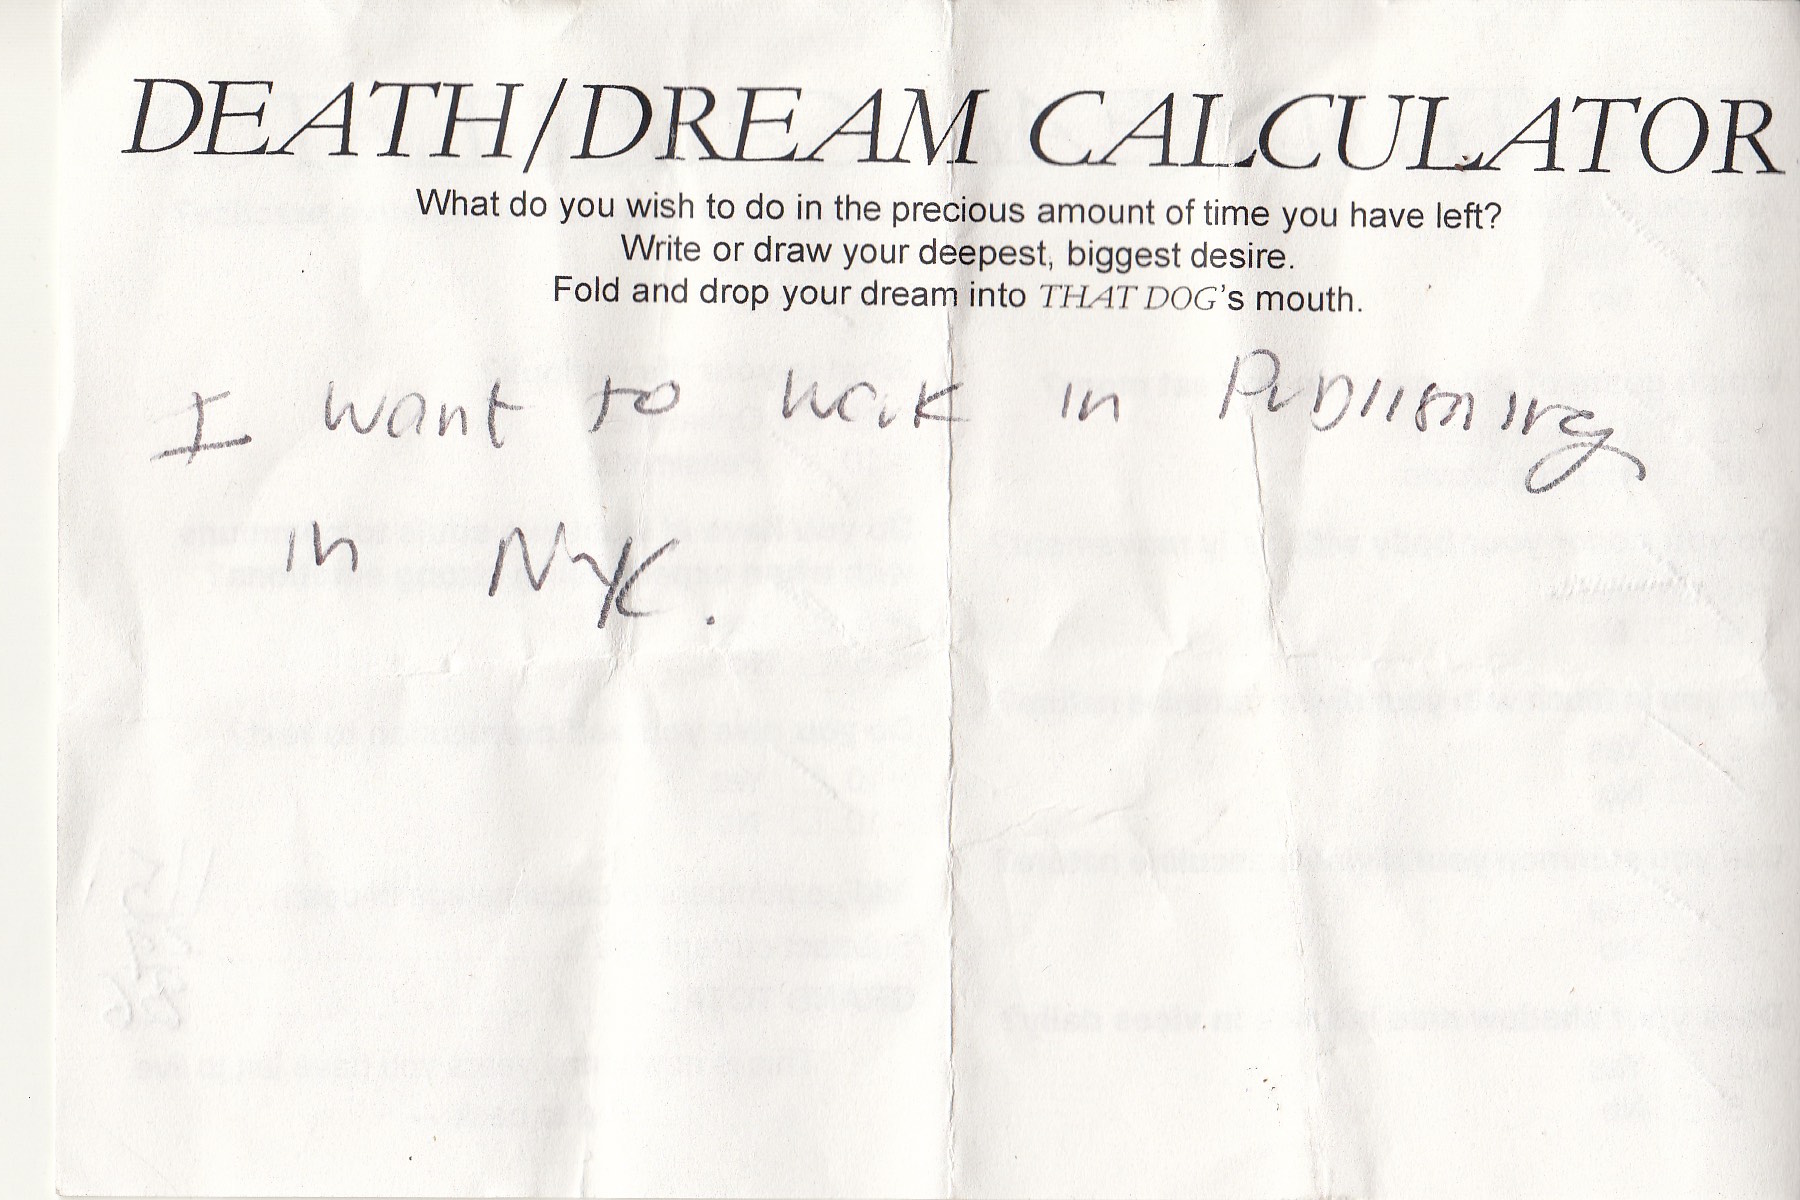 DEATH/DREAM CALCULATOR
What do you wish to do in the precious amount of time you have left?
Write or draw your deepest, biggest desire.
Fold and drop your dream into THAT DOG's mouth.
I want to work in Publishing
in NYC.